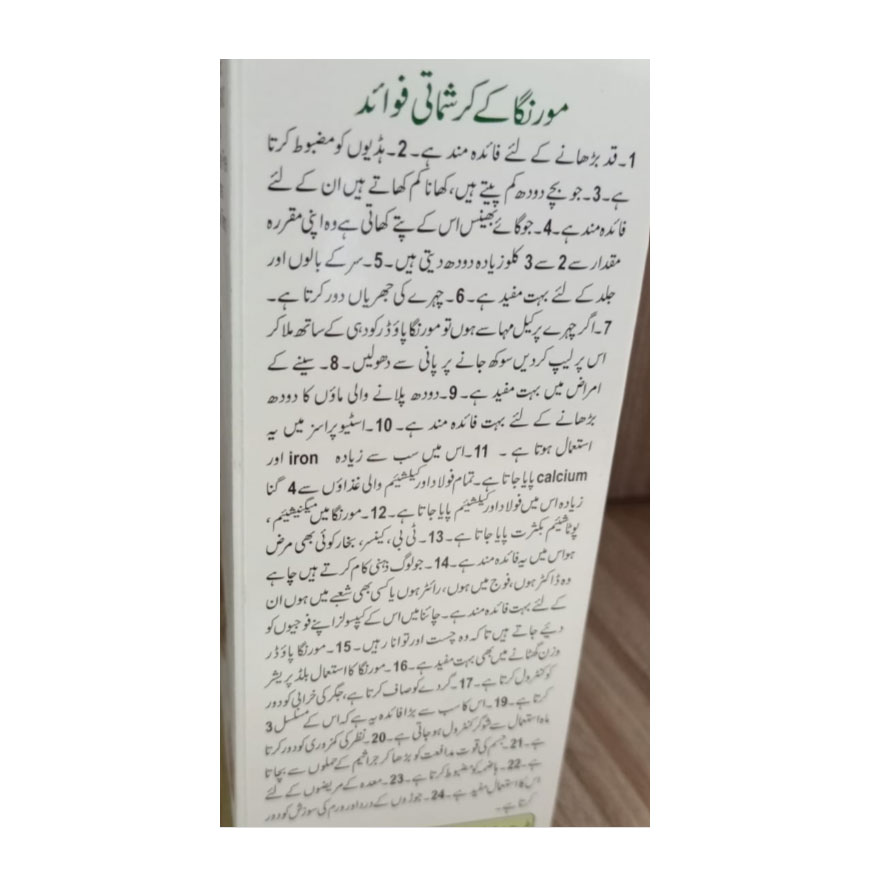 مورنگا کے کرشماتی فوائد
1۔قد بڑھانے کے لئے فائدہ مند ہے۔2۔ہڈیوں کو مضبوط کرتا
ہے۔3۔جو بچے دودھ کم پیتے ہیں، کھانا کم کھاتے ہیں ان کے لئے
فائدہ مند ہے۔4۔جو گائے بھینس اس کے پتے کھاتی ہے وہ اپنی مقررہ
مقدار سے 2 سے 3 کلو زیادہ دودھ دیتی ہیں۔5۔سر کے بالوں اور
جلد کے لئے بہت مفید ہے۔6۔چہرے کی جھریاں دور کرتا ہے۔
7۔اگر چہرے پر کیل مہاسے ہوں تو مورنگا پاؤڈر کو دہی کے ساتھ ملا کر
اس پر لیپ کر دیں سوکھ جانے پر پانی سے دھولیں۔8۔سینے کے
امراض میں بہت مفید ہے۔9۔دودھ پلانے والی ماؤں کا دودھ
بڑھانے کے لئے بہت فائدہ مند ہے۔10۔اسٹیوپراسز میں یہ
استعمال ہوتا ہے۔11۔اس میں سب سے زیادہ iron اور
calcium پایا جاتا ہے۔تمام فولاد اور کیلشیئم والی غذاؤں سے 4 گنا
زیادہ اس میں فولاد اور کیلشیئم پایا جاتا ہے۔12۔مورنگا میں میگنیشیئم،
پوٹاشیئم بکثرت پایا جاتا ہے۔13۔ٹی بی، کینسر، بخار کوئی بھی مرض
ہو اس میں یہ فائدہ مند ہے۔14۔جو لوگ ذہنی کام کرتے ہیں چاہے
وہ ڈاکٹر ہوں، فوج میں ہوں، رائٹر ہوں یا کسی بھی شعبے میں ہوں ان
کے لئے بہت فائدہ مند ہے۔چائنا میں اس کے کیپسولز اپنے فوجیوں کو
دیئے جاتے ہیں تاکہ وہ چست اور توانا رہیں۔15۔مورنگا پاؤڈر
وزن گھٹانے میں بھی بہت مفید ہے۔16۔مورنگا کا استعمال بلڈ پریشر
کو کنٹرول کرتا ہے۔17۔گردے کو صاف کرتا ہے، جگر کی خرابی کو دور
کرتا ہے۔19۔اس کا سب سے بڑا فائدہ یہ ہے کہ اس کے مسلسل 3
ماہ استعمال سے شوگر کنٹرول ہو جاتی ہے۔20۔نظر کی کمزوری کو دور کرتا
ہے۔21۔جسم کی قوت مدافعت کو بڑھا کر جراثیم کے حملوں سے بچاتا
ہے۔22۔ہاضمہ کو مضبوط کرتا ہے۔23۔معدہ کے مریضوں کے لئے
اس کا استعمال مفید ہے۔24۔جوڑوں کے درد اور ورم کی سوزش کو دور
کرتا ہے۔